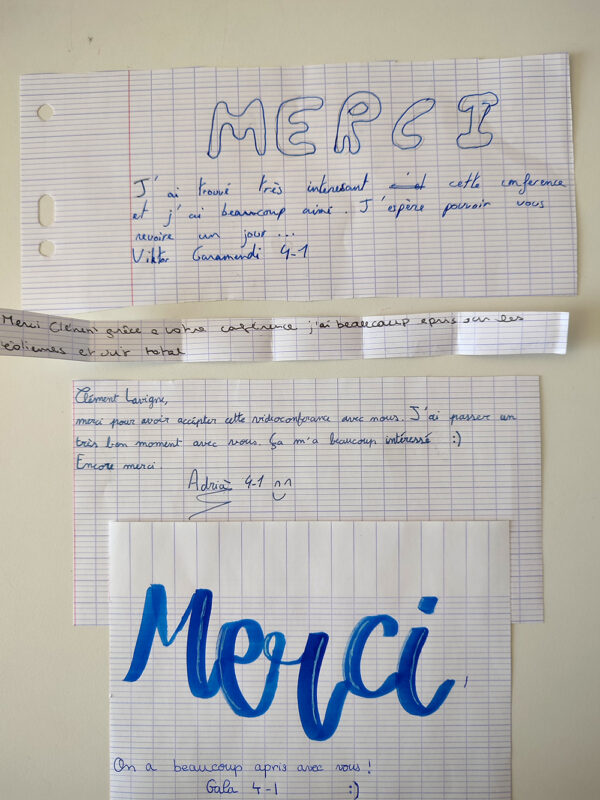 MERCI
J'ai trouvé très interesant cette conference
et j'ai beaucoup aimé. J'espère pouvoir vous
revoire un jour...
Viktor Garamendi 4-1
Merci Clément grâce a votre conférence j'ai beaucoup apris sur les
éoliennes et sur total
Clément Lavigne,
merci pour avoir accépter cette vidéoconférance avec nous. J'ai passer un
très bon moment avec vous. Ça m'a beaucoup intéressé :)
Encore merci.
Adrià 4-1
Merci!
On a beaucoup apris avec vous!
Gala 4-1 :)